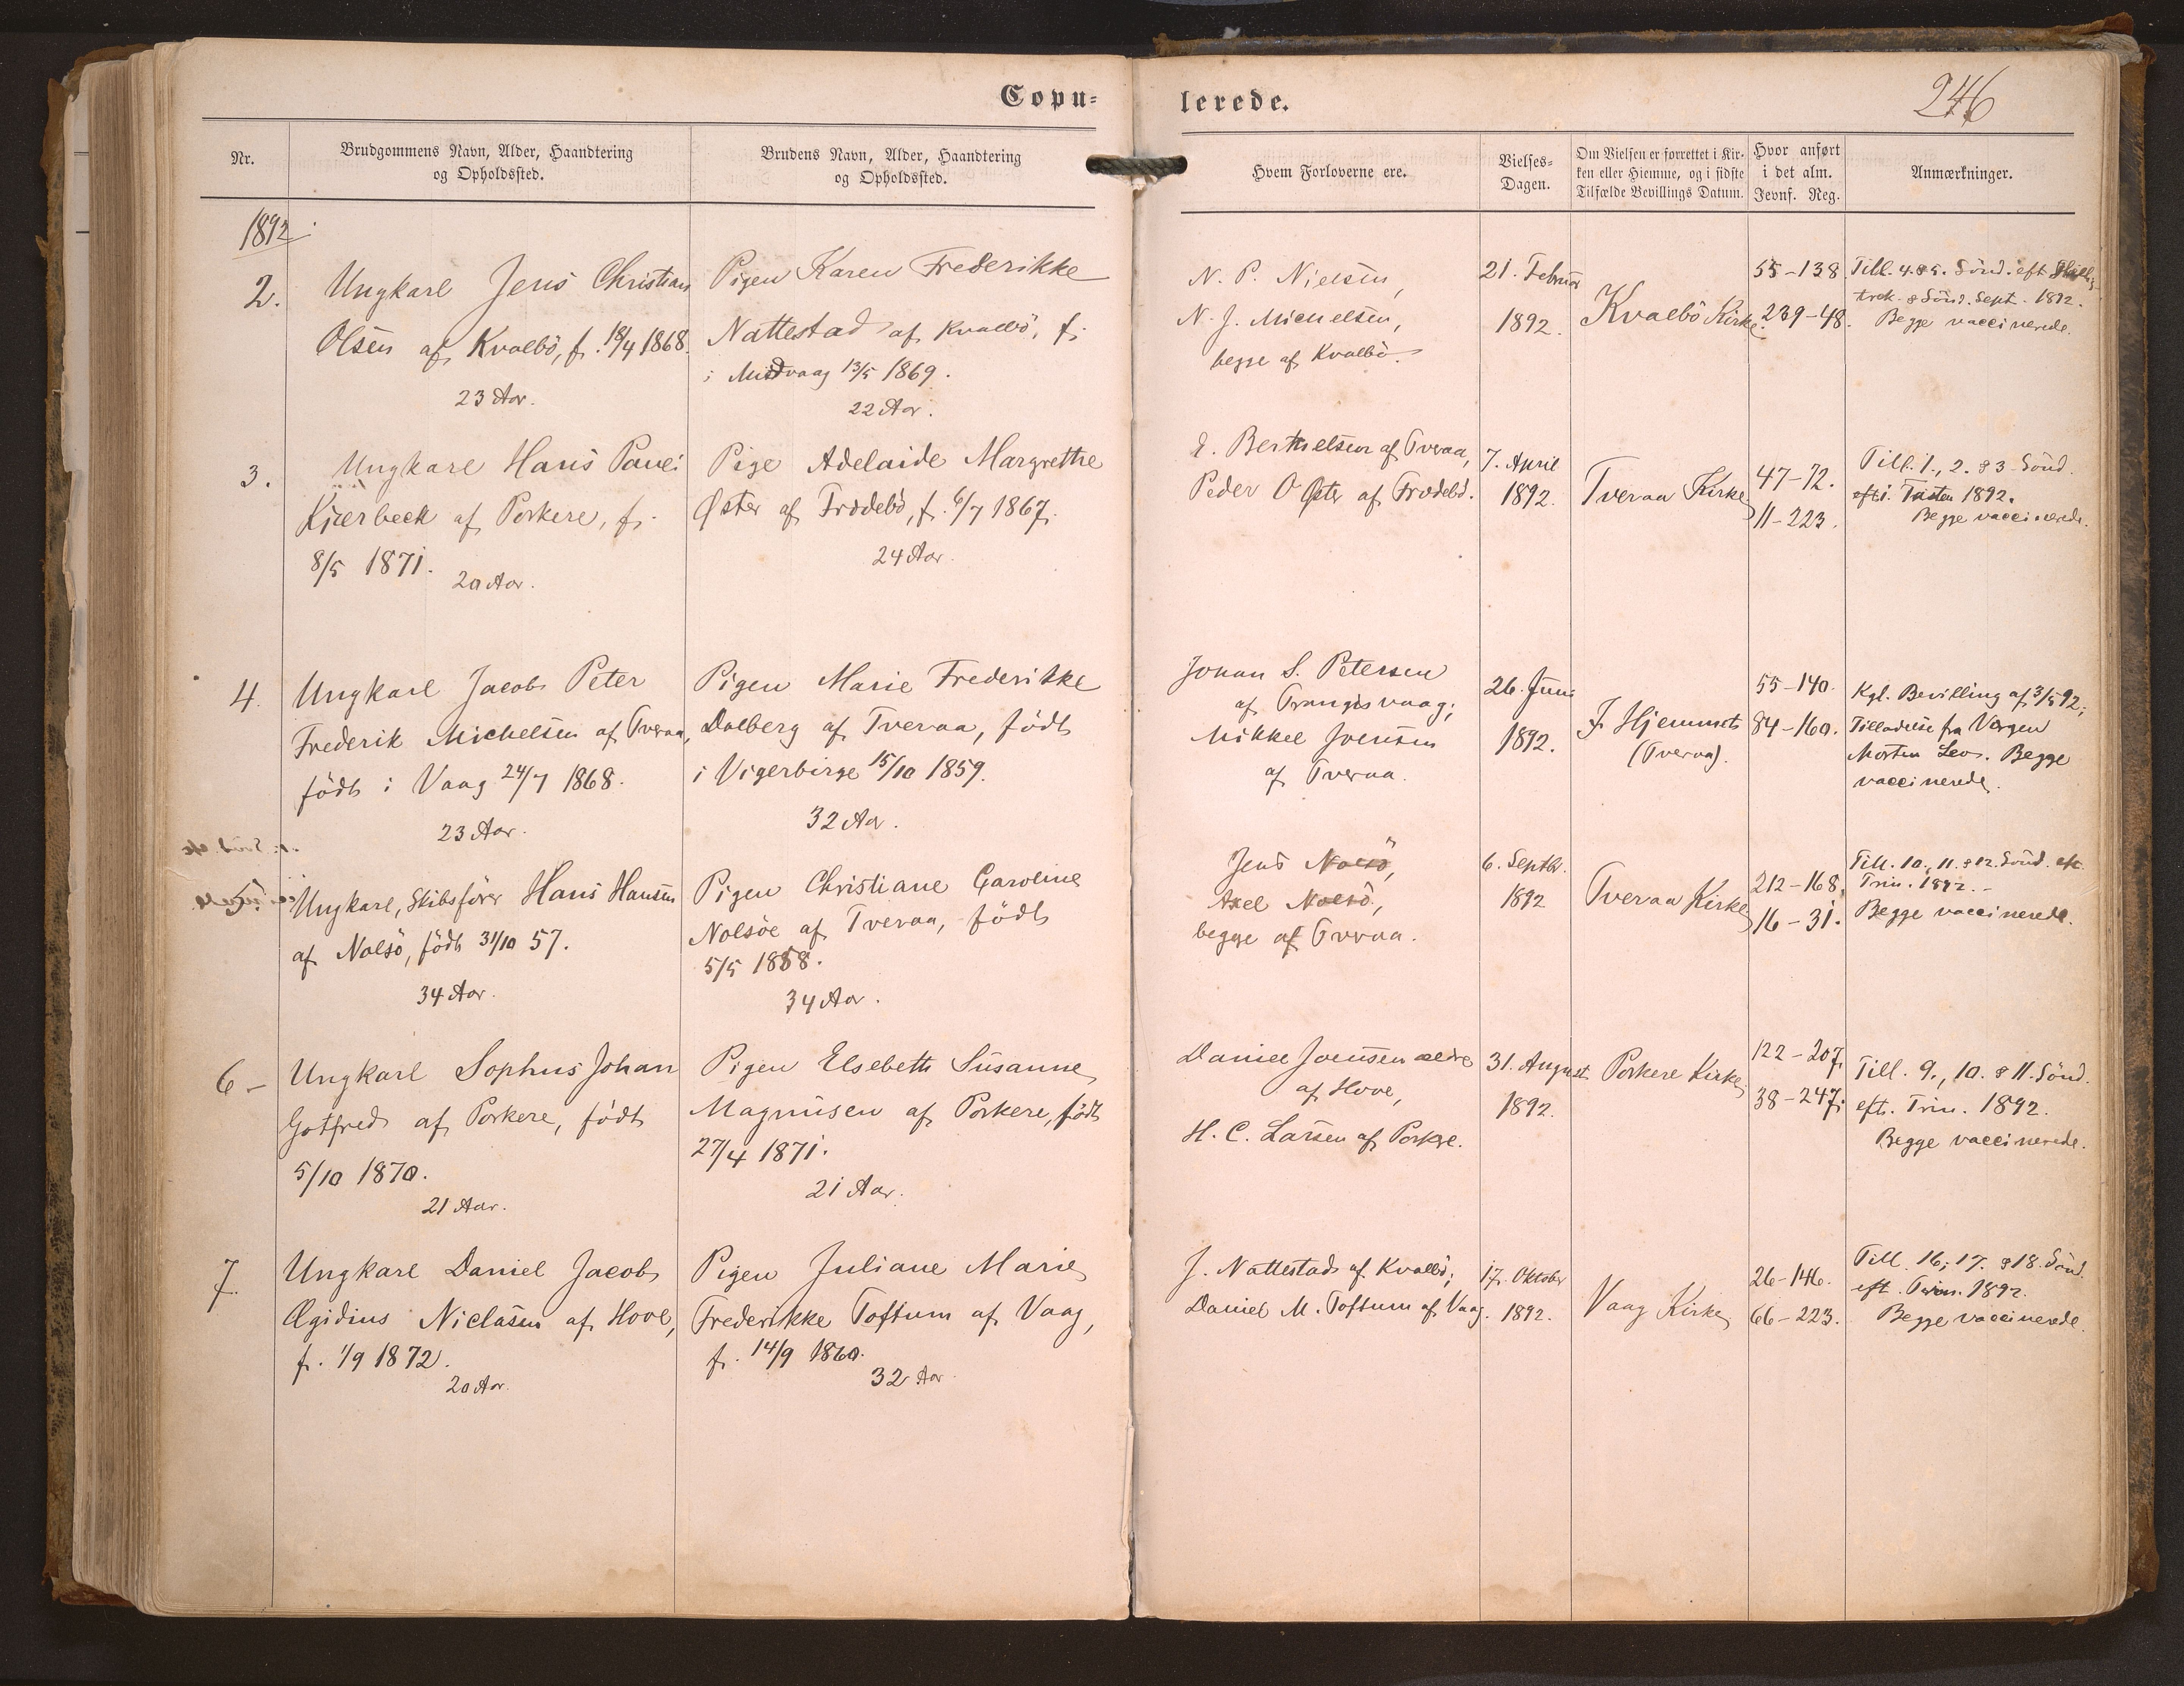 Copu-
lerede.
246
Nr.
Brudgommens Navn, Alder, Haandtering
og Opholdssted.
Brudens Navn, Alder, Haandtering
og Opholdssted.
Hvem Forloverne ere.
Vielses-
Dagen.
Om Vielsen er forrettet i Kir-
ken eller Hiemme, og i sidste
Tilfælde Bevillings Datum.
Hvor anført
i det alm.
Jevnf. Reg.
Anmærkninger.
1892
2.
Ungkarl Jens Christian
Olsen af Kvalbö, f. 18/4 1868.
23 Aar.
Pigen Karen Frederikke
Nattestad af Kvalbö, f.
i Midvaag 13/5 1869.
22 Aar.
N. P. Nielsen,
N. J. Michelsen,
begge af Kvalbö.
21. Februar
1892.
Kvalbö Kirke
55-138
239-48.
Till. 4. & 5. Sönd. eft. Hellig
trek. & Sönd. Sept. 1892.
Begge vaccinerede.
3.
Ungkarl Hans Pauli
Kjærbeck af Porkere, f.
8/5 1871.
20 Aar.
Pige Adelaide Margrethe
Øster af Frodebö, f. 6/7 1867.
24 Aar.
E. Berthelsen af Tveraa,
Peder O Øster af Frodebö.
7. April
1892.
Tveraa Kirke
47-72.
11-223.
Till. 1., 2. & 3 Sönd.
eft i Fasten 1892.
Begge vaccinerede.
4.
Ungkarl Jacob Peter
Frederik Michelsen af Tveraa,
födt i Vaag 24/7 1868.
23 Aar.
Pigen Marie Frederikke
Dalberg af Tveraa, födt
i Vigerbirge 15/10 1859.
32 Aar.
Johan S. Petersen
af Trangisvaag;
Mikkel Joensen
af Tveraa.
26. Juni
1892.
I Hjemmet
(Tveraa).
55-140.
84-160.
Kgl. Bevilling af 3/5 92;
Tilladelse fra Værgen
Morten Leos. Begge
vaccinerede.
5.
Ungkarl, Skibsförer Hans Hansen
af Nolsö, födt 31/10 57.
34 Aar.
Pigen Christiane Caroline
Nolsöe af Tveraa, födt
5/5 1858.
34 Aar.
Jens Nolsö,
Axel Nolsö,
begge af Tveraa.
6. Septbr.
1892
Tveraa Kirke
212-168,
16-31.
Till. 10., 11. & 12. Sönd. eft.
Trin. 1892.-
Begge vaccinerede.
6-
Ungkarl Sophus Johan
Gotfred af Porkere, födt
5/10 1870.
21 Aar.
Pigen Elsebeth Susanne
Magnusen af Porkere, födt
27/4 1871.
21 Aar.
Daniel Joensen ældre
af Hove,
H. C. Larsen af Porkere.
31. August
1892.
Porkere Kirke
122-207.
38-247.
Till. 9., 10. & 11. Sönd.
eft. Trin. 1892.
Begge vaccinerede.
7.
Ungkarl Daniel Jacob
Ægidius Niclasen af Hove,
f. 1/9 1872.
20 Aar.
Pigen Juliane Marie
Frederikke Toftum af Vaag,
f. 14/9 1860.
32 Aar.
J. Nattestad af Kvalbö;
Daniel M. Toftum af Vaag.
17. Oktober
1892.
Vaag Kirke
26-146.
66-223.
Till. 16., 17. & 18. Sönd.
eft. Trin. 1892.
Begge vaccinerede.